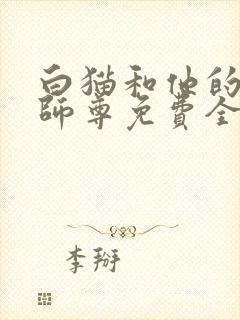 白猫和他的
師尊免費全
李掰